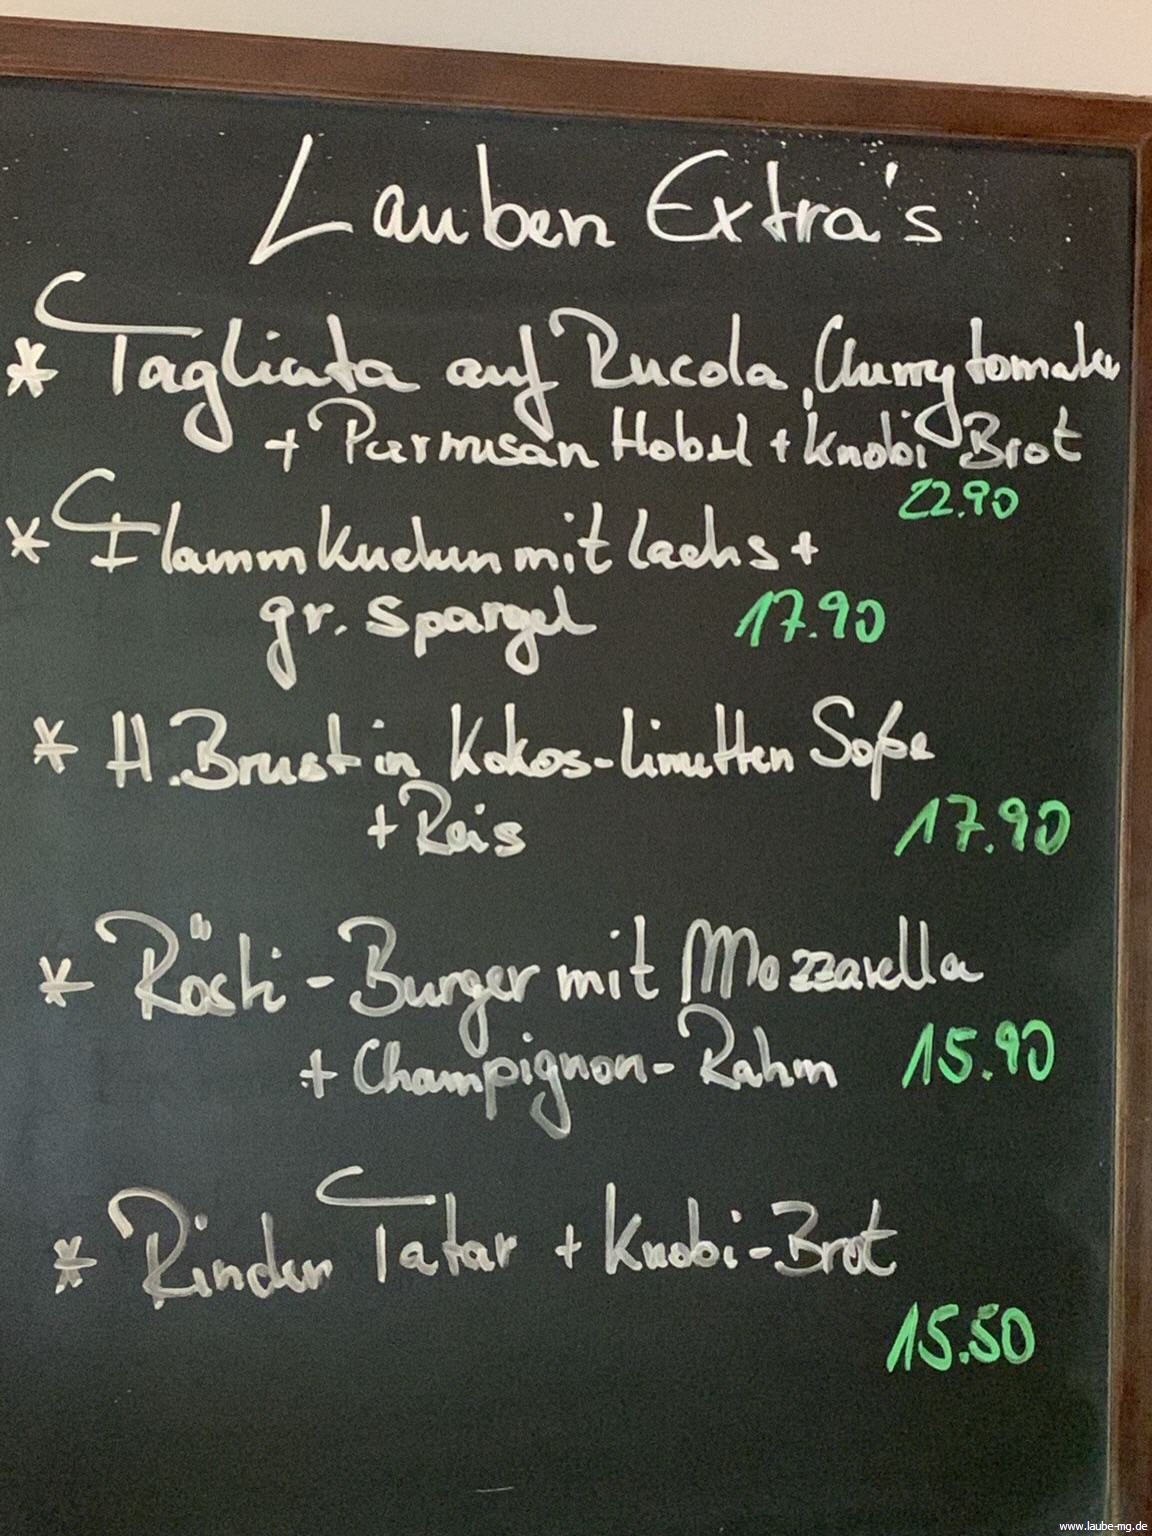 Lauben Extra's
* Tagliata auf Rucola, Cherrytomaten
+ Parmesan Hobel + Knobi Brot
22.90
* Flammkuchen mit Lachs +
gr. Spargel 17.90
* H.Brust in Kokos-Limetten Soße
+ Reis 17.90
* Rösti-Burger mit Mozzarella
+ Champignon-Rahm 15.90
* Rinder Tatar + Knobi-Brot
15.50
www.laube-mg.de